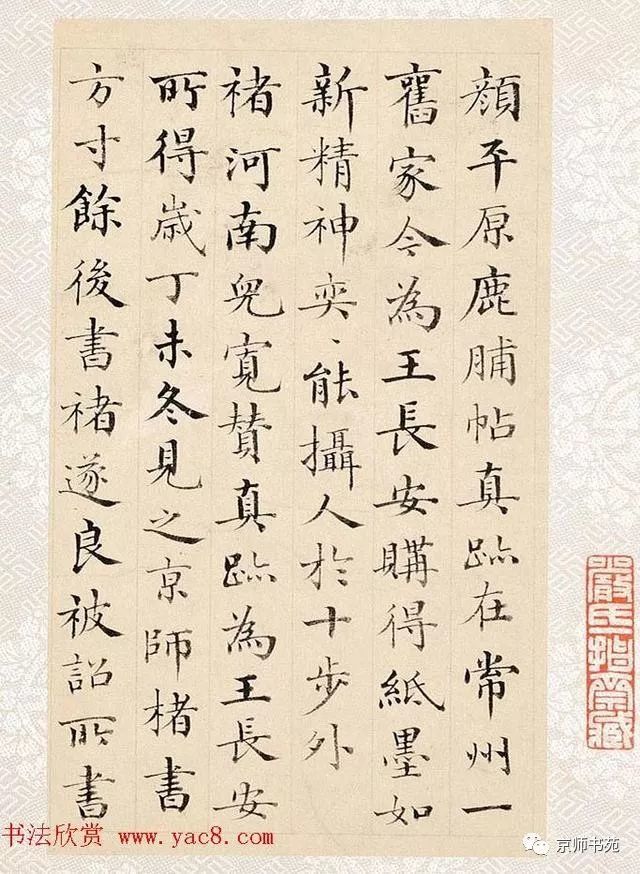 顔平原鹿脯帖真跡在常州一
舊家今為王長安購得紙墨如
新精神奕〻能攝人於十步外
褚河南兒寬賛真跡為王長安
所得歲丁未冬見之京師楮書
方寸餘後書褚遂良被詔所書
書法欣赏 www.yac8.com
京师书苑